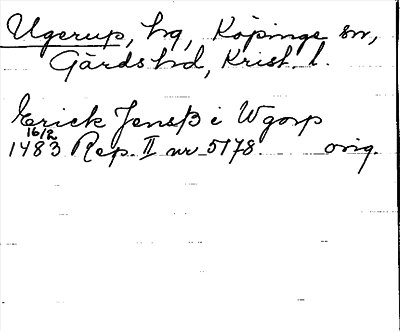 Ugerup, hg, Köpinge sn,
Gärds hd, Krist. l.
Erick Jensß i Wgorp
16/2
1483 Rep. II nr 5178. orig.